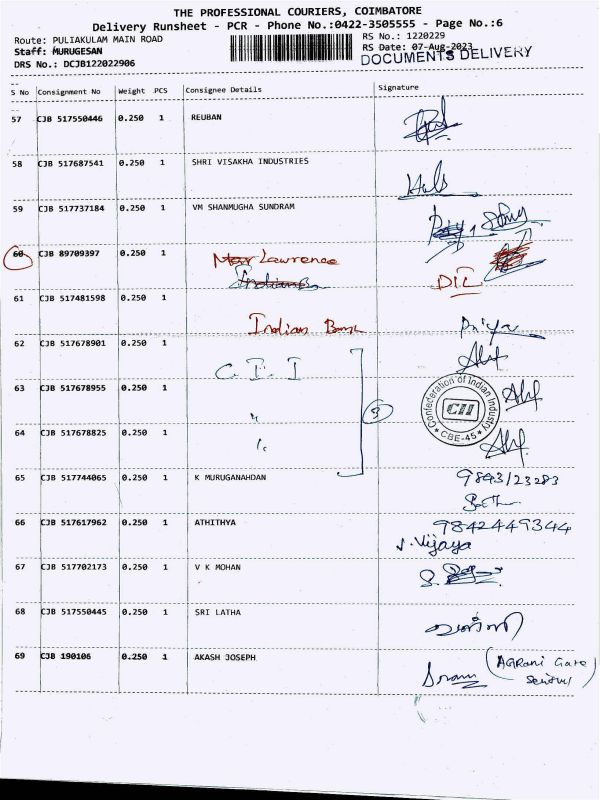 THE PROFESSIONAL COURIERS, COIMBATORE
Delivery Runsheet - PCR - Phone No.:0422-3505555 - Page No.:6
Route: PULIAKULAM MAIN ROAD RS No.: 1220229
Staff: MURUGESAN RS Date: 07-Aug-2023
DRS No.: DCJB122022906 DOCUMENTS DELIVERY
S No Consignment No Weight PCS Consignee Details Signature
57 CJB 517550446 0.250 1 REUBAN
58 CJB 517687541 0.250 1 SHRI VISAKHA INDUSTRIES
59 CJB 517737184 0.250 1 VM SHANMUGHA SUNDRAM
60 CJB 89709397 0.250 1 Lawrence
DIL
61 CJB 517481598 0.250 1
Indian Bank Priya
62 CJB 517678901 0.250 1
C. I. I
63 CJB 517678955 0.250 1 "
Confederation of Indian Industry
CII
* CBE-45 *
3
64 CJB 517678825 0.250 1
65 CJB 517744065 0.250 1 K MURUGANAHDAN 9843123283
66 CJB 517617962 0.250 1 ATHITHYA 9842449344
J. Vijaya
67 CJB 517702173 0.250 1 V K MOHAN
68 CJB 517550445 0.250 1 SRI LATHA
69 CJB 190106 0.250 1 AKASH JOSEPH